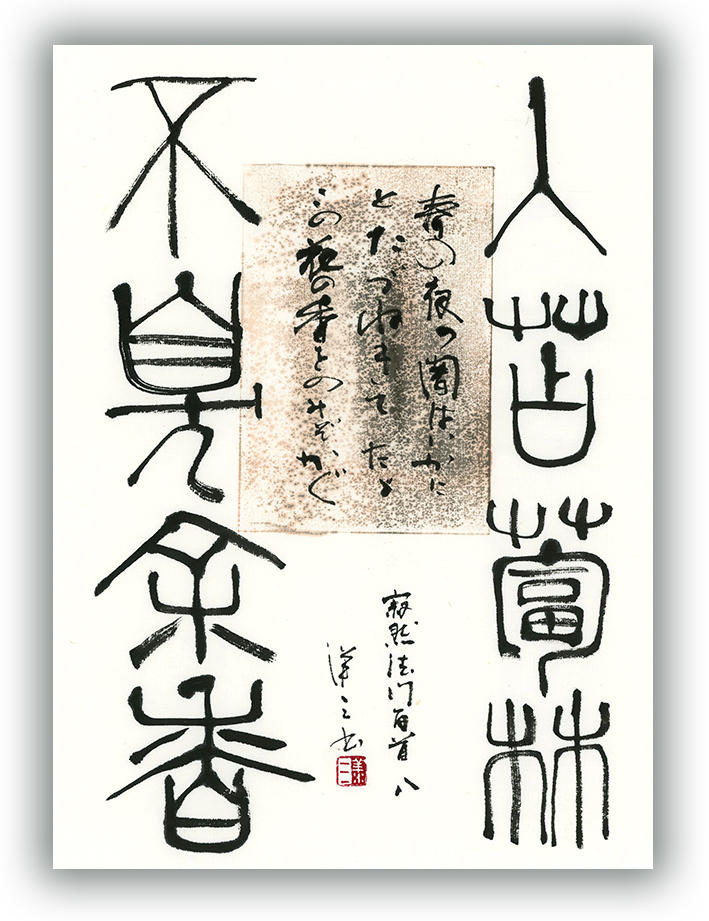 入苫蔔林
不臭余香
春の夜の闇はいかに
とたづねきてたゞ
この花の香をのみぞかぐ
寂然法門百首 八
洋三書